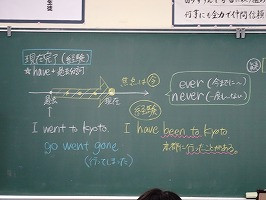 現在完了(経験)
☆have+過去分詞
焦点は今
過去
現在
経験
ever(今までに)
never(一度もない)
I went to Kyoto.
I have been to Kyoto
go went gone
(行ってしまった)
京都に行ったことがある。